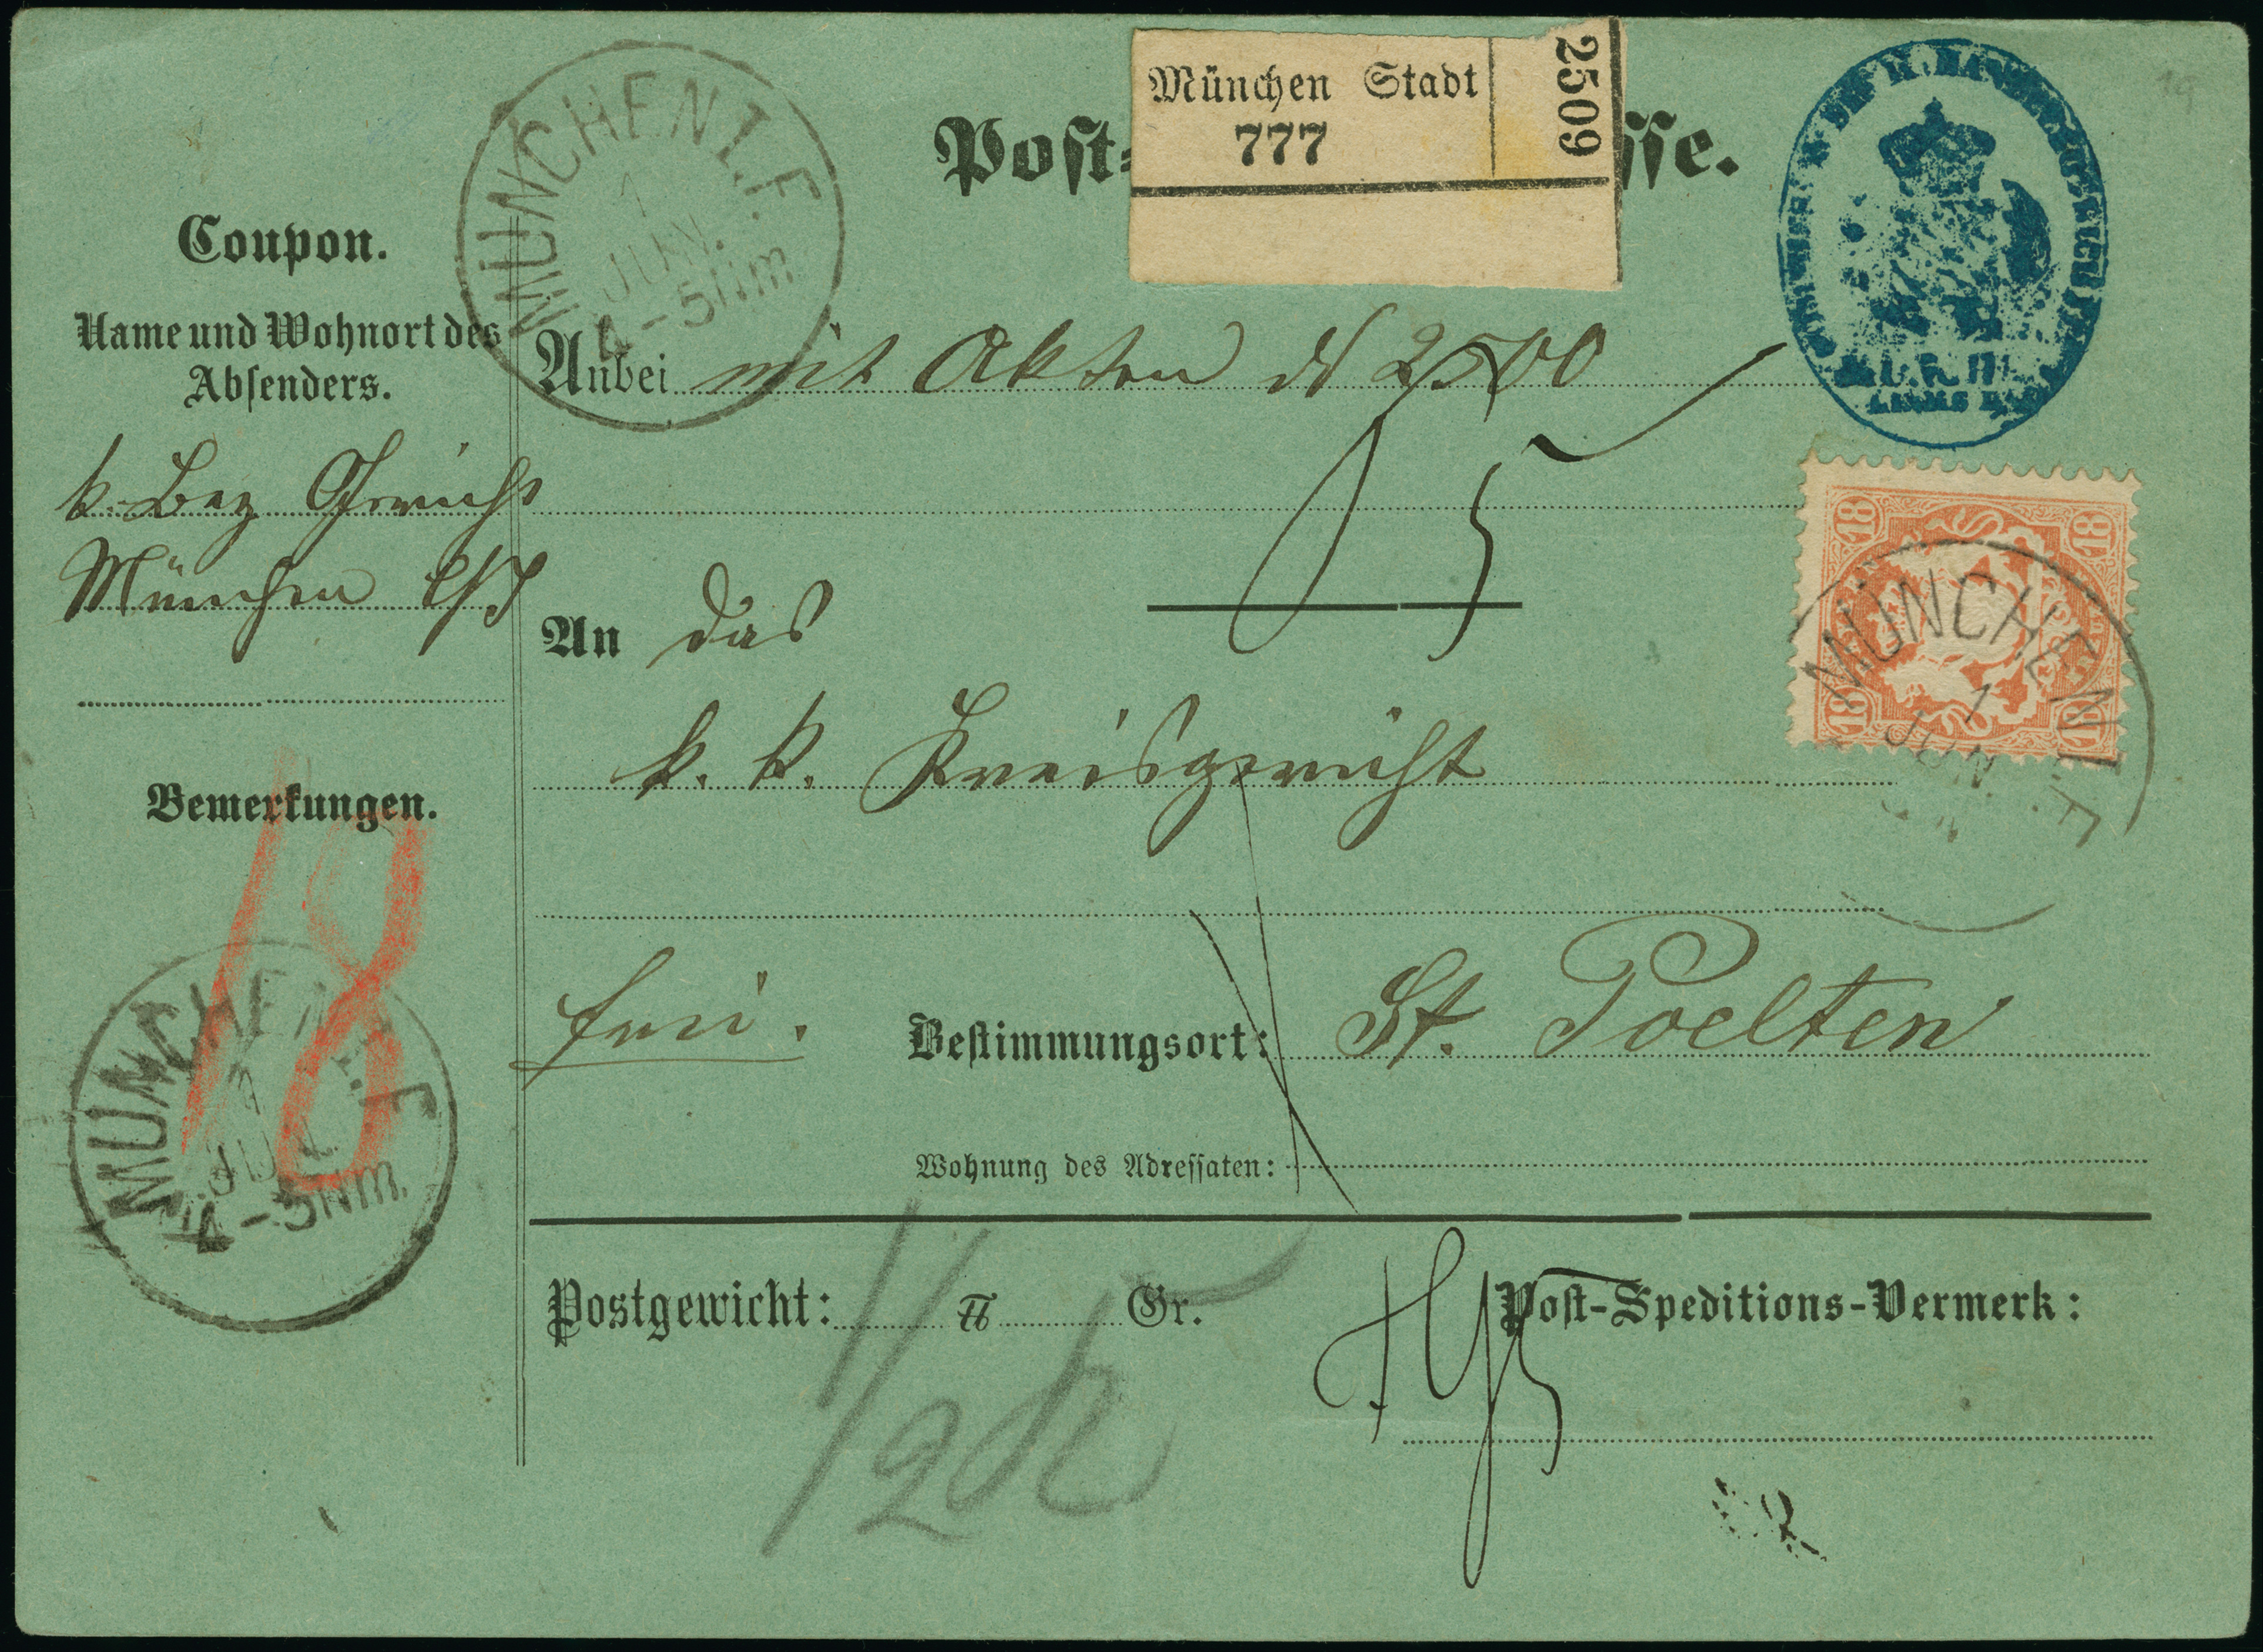 München Stadt
777
2509
Post=
sse.
MÜNCHEN I. F
1
JUN.
4-5 Nm
Coupon.
Name und Wohnort des
Absenders.
k. Bez Gericht
München l/I
Bemerkungen.
18
MÜNCHEN I. F
JUN
4-5 Nm.
Anbei mit Akten № 2500
5
18
18
18
18
MÜNCHEN I. F
1
JUN.
An das
k. k. Kreisgericht
frei.
Bestimmungsort: St. Poelten
Wohnung des Adressaten:
Postgewicht: ℔ Gr.
1/2
Post-Speditions-Vermerk: